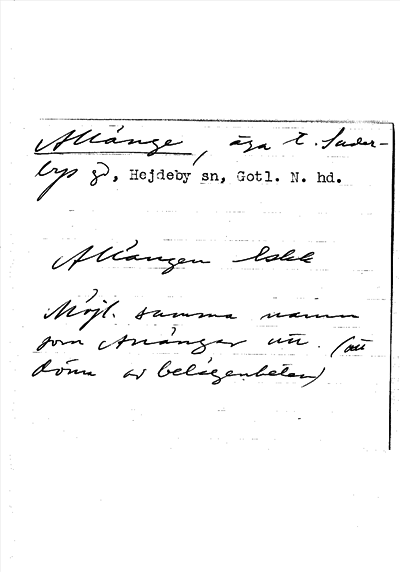 Allänge, äga t. Suder-
bys gd, Hejdeby sn, Gotl. N. hd.
Allängen
Möjl. samma namn
som Allängar
döma av belägenheten)